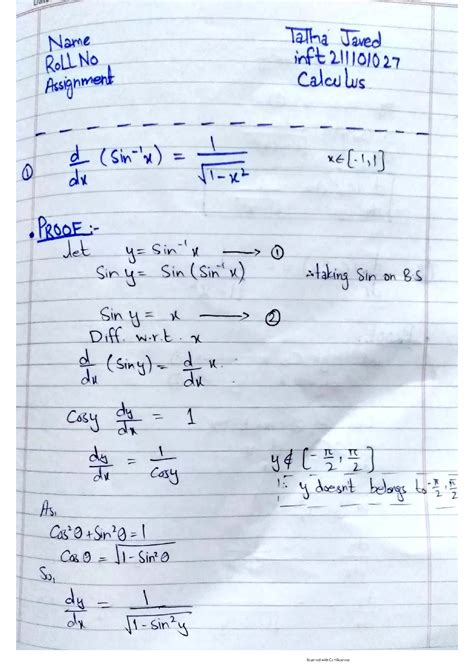 Name Talha Javed
Roll No inft 211101027
Assignment Calculus
① d/dx (Sin⁻¹x) = 1/√(1-x²) x∈[-1,1]
• PROOF :-
let y = Sin⁻¹ x → ①
Sin y = Sin (Sin⁻¹x) ∴ taking Sin on B.S
Sin y = x → ②
Diff. w.r.t. x
d/dx (Sin y) = d/dx x.
Cosy dy/dx = 1
dy/dx = 1/Cosy y ∉ [-π/2, π/2]
∵ y doesn't belongs to -π/2, π/2
As,
Cos²θ + Sin²θ = 1
Cos θ = √(1-Sin²θ)
So,
dy/dx = 1/√(1-Sin²y)
Scanned with CamScanner